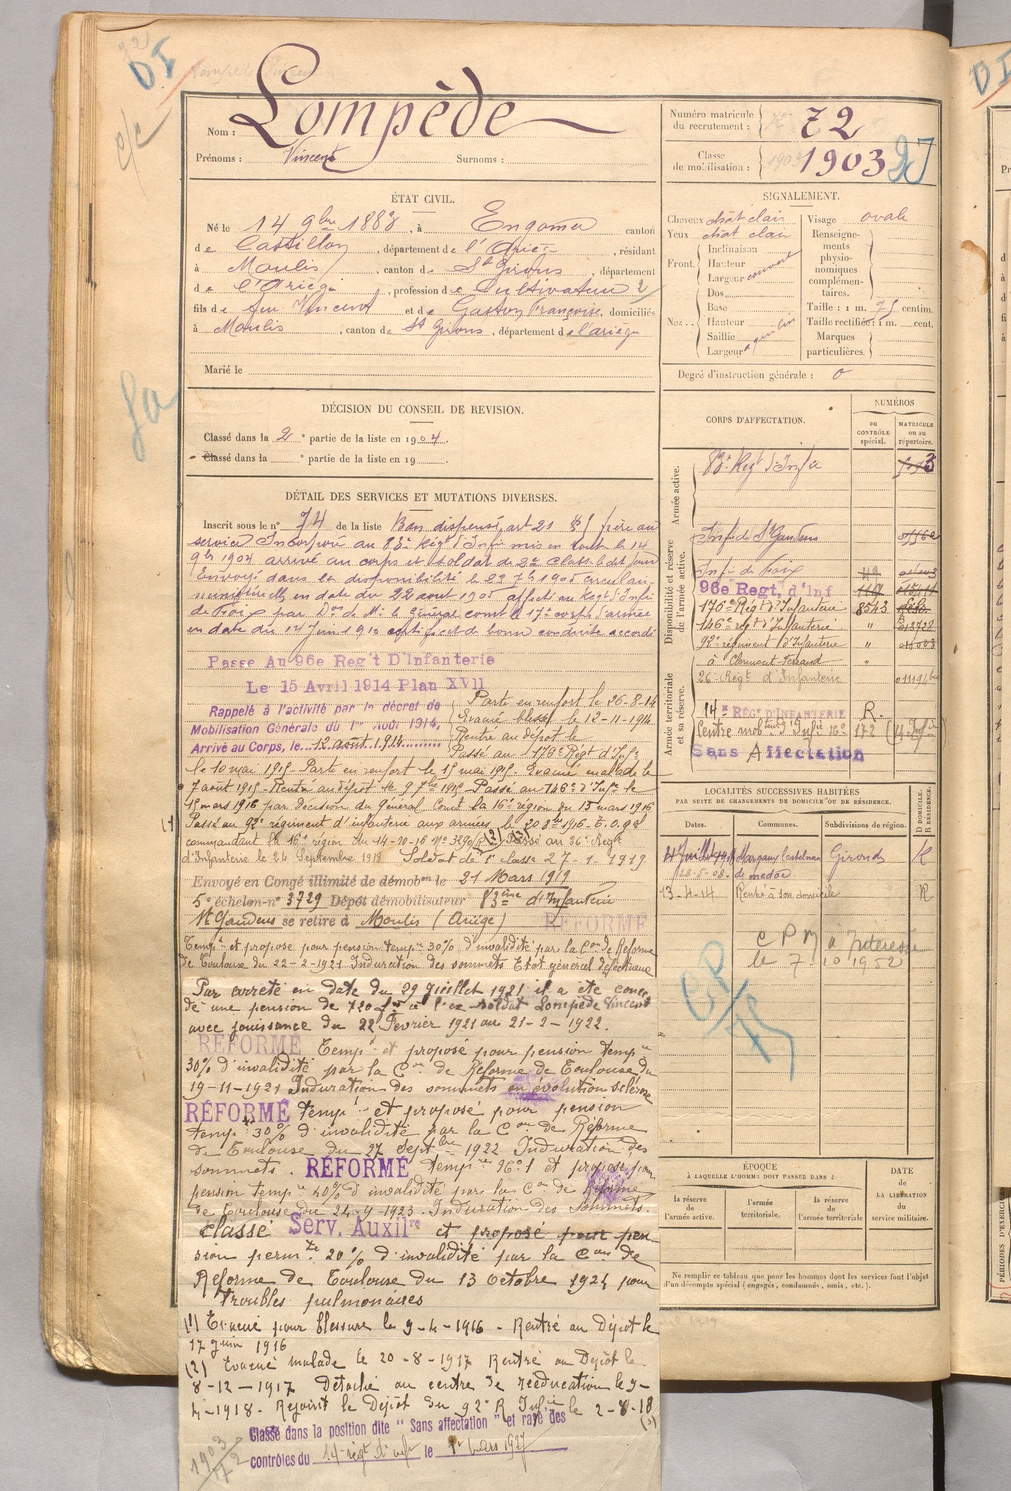 DI
Nom : Lompède
Prénoms : Vincent Surnoms :
Numéro matricule du recrutement : 72
Classe de mobilisation : 1903
ÉTAT CIVIL.
Né le 14 9bre 1883, à Engomer canton
de Castillon, département de l'Ariège, résidant
à Moulis, canton de St Girons, département
de l'Ariège, profession de Cultivateur
fils de feu Vincent et de Gaston Françoise, domiciliés
à Moulis, canton de St Girons, département de l'ariège
Marié le
SIGNALEMENT.
Cheveux chât clair Visage ovale
Yeux chat clair Renseignements physionomiques complémentaires.
Front. Inclinaison
Hauteur
Largeur
Nez. Dos
Base
Hauteur
Saillie
Largeur
Taille : 1 m. 75 centim.
Taille rectifiée : 1 m. cent.
Marques particulières.
Degré d'instruction générale : 0
DÉCISION DU CONSEIL DE REVISION.
Classé dans la 2e partie de la liste en 1904.
Classé dans la e partie de la liste en 19
DÉTAIL DES SERVICES ET MUTATIONS DIVERSES.
Inscrit sous le n° 74 de la liste Bon dispensé art 21 frère au
service Incorporé au 83e Régt d'Infie mis en route le 14
9bre 1904 arrivé au corps et soldat de 2e classe le dit jour
Envoyé dans la disponibilité le 23 7bre 1905 circulaire
ministérielle en date du 22 aout 1905 affecté au Regt d'Infie
de Foix par Don de Mr le Général comt le 17e corps d'armée
en date du 14 Juin 1910 certificat de bonne conduite accordé
Passé Au 96e Reg't D'Infanterie
Le 15 Avril 1914 Plan XVII
Rappelé à l'activité par le décret de
Mobilisation Générale du 1er Août 1914,
Arrivé au Corps, le 12 août 1914
Parti en renfort le 26-8-14
Evacué blessé le 12-11-1914
Rentré au dépôt le
Passé au 176e Régt d'Infie
le 10 mai 1915. Parti en renfort le 15 mai 1915. Evacué malade le
7 aout 1915. Rentré au dépôt le 9 7bre 1915 Passé au 146e d'Infie le
15 mars 1916 par décision du Général Comt la 16e région du 13 mars 1916
Passé au 92e régiment d'infanterie aux armées le 20 8bre 1916. E.O. Gal
commandant la 16e région du 14-10-16 Passé au 26e Régt
d'Infanterie le 24 Septembre 1918 Soldat de 1e classe 27-1-1919
Envoyé en Congé illimité de démobon le 21 Mars 1919
5e échelon-n° 3729 Dépôt démobilisateur 83ème d'Infanterie
St Gaudens se retire à Moulis (Ariège) RÉFORMÉ
Tempre et proposé pour pension tempre 30% d'invalidité par la Con de Réforme
de Toulouse du 22-2-1921 Induration des sommets Etat général défectueux
Par arrêté en date du 29 Juillet 1921 il a été concé
dé une pension de 720 frs à l'ex soldat Lompède Vincent
avec jouissance du 22 Fevrier 1921 au 21-2-1922.
RÉFORMÉ Tempre et proposé pour pension tempre
30% d'invalidité par la Con de Réforme de Toulouse du
19-11-1921 Induration des sommets en évolution
RÉFORMÉ tempre et proposé pour pension
tempre 30% d'invalidité par la Con de Réforme
de Toulouse du 27 Septbre 1922 Induration des
sommets. RÉFORMÉ tempre et proposé pour
pension tempre 40% d'invalidité par la Con de Réforme
de Toulouse du 24-9-1923. Induration des Sommets.
Classé Serv. Auxilre et proposé pour pen
sion permte 20% d'invalidité par la Con de
Réforme de Toulouse du 13 Octobre 1924 pour
troubles pulmonaires
(1) Evacué pour blessure le 9-4-1916 - Rentré au Dépôt le
17 Juin 1916
(2) Evacué malade le 20-8-1917 Rentré au Dépôt le
8-12-1917 Détaché au centre de rééducation le 9-
4-1918. Rejoint le Dépôt du 92e R Infie le 2-8-18
Classé dans la position dite " Sans affectation " et rayé des
contrôles du 14e régt d'infie le 1er Mars 1927
1903
72
CORPS D'AFFECTATION.
NUMÉROS
DU CONTRÔLE spécial.
MATRICULE ou au répertoire.
Armée active.
83e Regt d'Infie
Disponibilité et réserve de l'armée active.
Infie de St Gaudens
Infie de Foix
96e Regt. d'Inf
176e Régt d'Infanterie 8543
146e regt d'Infanterie "
92e régiment d'Infanterie "
à Clermont-Ferrand "
26e Régt d'Infanterie
Armée territoriale et sa réserve.
14e RÉGt D'INFANTERIE R.
Centre mobteur d'Infie 16e 172
Sans Affectation
LOCALITÉS SUCCESSIVES HABITÉES
PAR SUITE DE CHANGEMENTS DE DOMICILE OU DE RÉSIDENCE.
Dates. Communes. Subdivisions de région. D DOMICILE. R RÉSIDENCE.
Margaux Castelnau Gironde R
28-5-08 de médoc
13-4-14 Rentré à son domicile R
C P M à Intéressé
le 7.10 1952
CP
ÉPOQUE
À LAQUELLE L'HOMME DOIT PASSER DANS :
la réserve de l'armée active.
l'armée territoriale.
la réserve de l'armée territoriale
DATE de LA LIBÉRATION du service militaire.
Ne remplir ce tableau que pour les hommes dont les services font l'objet
d'un décompte spécial (engagés, condamnés, omis, etc.).